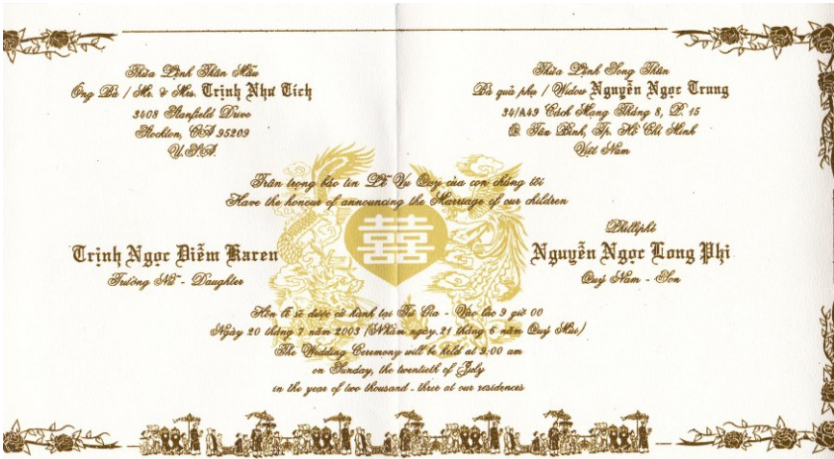 Thừa Lệnh Thân Mẫu
Ông Bà / Mr. & Mrs. Trịnh Như Tích
3408 Stanfield Drive
Stockton, CA 95209
U.S.A.
Thừa Lệnh Song Thân
Bà quả phụ / Widow Nguyễn Ngọc Trung
34/A49 Cách Mạng Tháng 8, P. 15
Q. Tân Bình, Tp. Hồ Chí Minh
Việt Nam
Trân trọng báo tin Lễ Vu Quy của con chúng tôi
Have the honour of announcing the Marriage of our children
囍
Trịnh Ngọc Diễm Karen
Trưởng Nữ - Daughter
Nguyễn Ngọc Long Phi
Quý Nam - Son
Hôn lễ sẽ được cử hành tại Tư Gia - Vào lúc 9 giờ 00
Ngày 20 tháng 7 năm 2003 (Nhằm ngày 21 tháng 6 năm Quý Mùi)
The Wedding Ceremony will be held at 9:00 am
on Sunday, the twentieth of July
in the year of two thousand - three at our residences